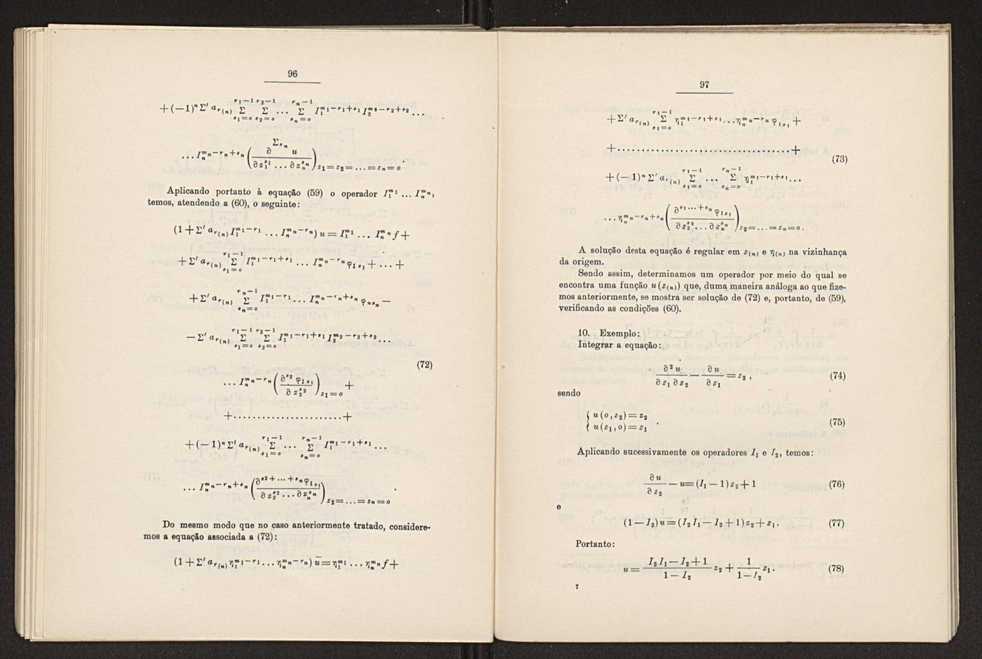 96
+(−1)ⁿ Σ′ a_{r(n)} Σ_{s₁=o}^{r₁−1} Σ_{s₂=o}^{r₂−1} ... Σ_{sₙ=o}^{rₙ−1} I₁^{m₁−r₁+s₁} I₂^{m₂−r₂+s₂} ...
... Iₙ^{mₙ−rₙ+sₙ} (∂^{Σsₙ} u / ∂z₁^{s₁} ... ∂zₙ^{sₙ})_{z₁=z₂=...=zₙ=o}.
Aplicando portanto à equação (59) o operador I₁^{m₁} ... Iₙ^{mₙ},
temos, atendendo a (60), o seguinte:
(1+Σ′ a_{r(n)} I₁^{m₁−r₁} ... Iₙ^{mₙ−rₙ}) u = I₁^{m₁} ... Iₙ^{mₙ} f +
+Σ′ a_{r(n)} Σ_{s₁=o}^{r₁−1} I₁^{m₁−r₁+s₁} ... Iₙ^{mₙ−rₙ} φ_{1s₁} + ... +
+Σ′ a_{r(n)} Σ_{sₙ=o}^{rₙ−1} I₁^{m₁−r₁} ... Iₙ^{mₙ−rₙ+sₙ} φ_{nsₙ} −
−Σ′ a_{r(n)} Σ_{s₁=o}^{r₁−1} Σ_{s₂=o}^{r₂−1} I₁^{m₁−r₁+s₁} I₂^{m₂−r₂+s₂} ...
(72)
... Iₙ^{mₙ−rₙ} (∂^{s₂} φ_{1s₁} / ∂z₂^{s₂})_{z₁=o} +
+.......................+
+(−1)ⁿ Σ′ a_{r(n)} Σ_{s₁=o}^{r₁−1} ... Σ_{sₙ=o}^{rₙ−1} I₁^{m₁−r₁+s₁} ...
... Iₙ^{mₙ−rₙ+sₙ} (∂^{s₂+...+sₙ} φ_{1s₁} / ∂z₂^{s₂} ... ∂zₙ^{sₙ})_{z₂=...=zₙ=o}.
Do mesmo modo que no caso anteriormente tratado, considere-
mos a equação associada a (72):
(1+Σ′ a_{r(n)} η₁^{m₁−r₁} ... ηₙ^{mₙ−rₙ}) ū = η₁^{m₁} ... ηₙ^{mₙ} f +
97
+Σ′ a_{r(n)} Σ_{s₁=o}^{r₁−1} η₁^{m₁−r₁+s₁} ... ηₙ^{mₙ−rₙ} φ_{1s₁} +
+...................................+
(73)
+(−1)ⁿ Σ′ a_{r(n)} Σ_{s₁=o}^{r₁−1} ... Σ_{sₙ=o}^{rₙ−1} η₁^{m₁−r₁+s₁} ...
... ηₙ^{mₙ−rₙ+sₙ} (∂^{s₁...+sₙ} φ_{1s₁} / ∂z₂^{s₂} ... ∂zₙ^{sₙ})_{z₂=...=zₙ=o}.
A solução desta equação é regular em z₍ₙ₎ e η₍ₙ₎ na vizinhança
da origem.
Sendo assim, determinamos um operador por meio do qual se
encontra uma função u(z₍ₙ₎) que, duma maneira análoga ao que fize-
mos anteriormente, se mostra ser solução de (72) e, portanto, de (59),
verificando as condições (60).
10. Exemplo:
Integrar a equação:
∂²u / ∂z₁∂z₂ − ∂u / ∂z₁ = z₂, (74)
sendo
{ u(o, z₂) = z₂
{ u(z₁, o) = z₁ . (75)
Aplicando sucessivamente os operadores I₁ e I₂, temos:
∂u / ∂z₂ − u = (I₁ − 1) z₂ + 1 (76)
e
(1 − I₂) u = (I₂ I₁ − I₂ + 1) z₂ + z₁. (77)
Portanto:
u = (I₂ I₁ − I₂ + 1) / (1 − I₂) z₂ + 1 / (1 − I₂) z₁. (78)
7